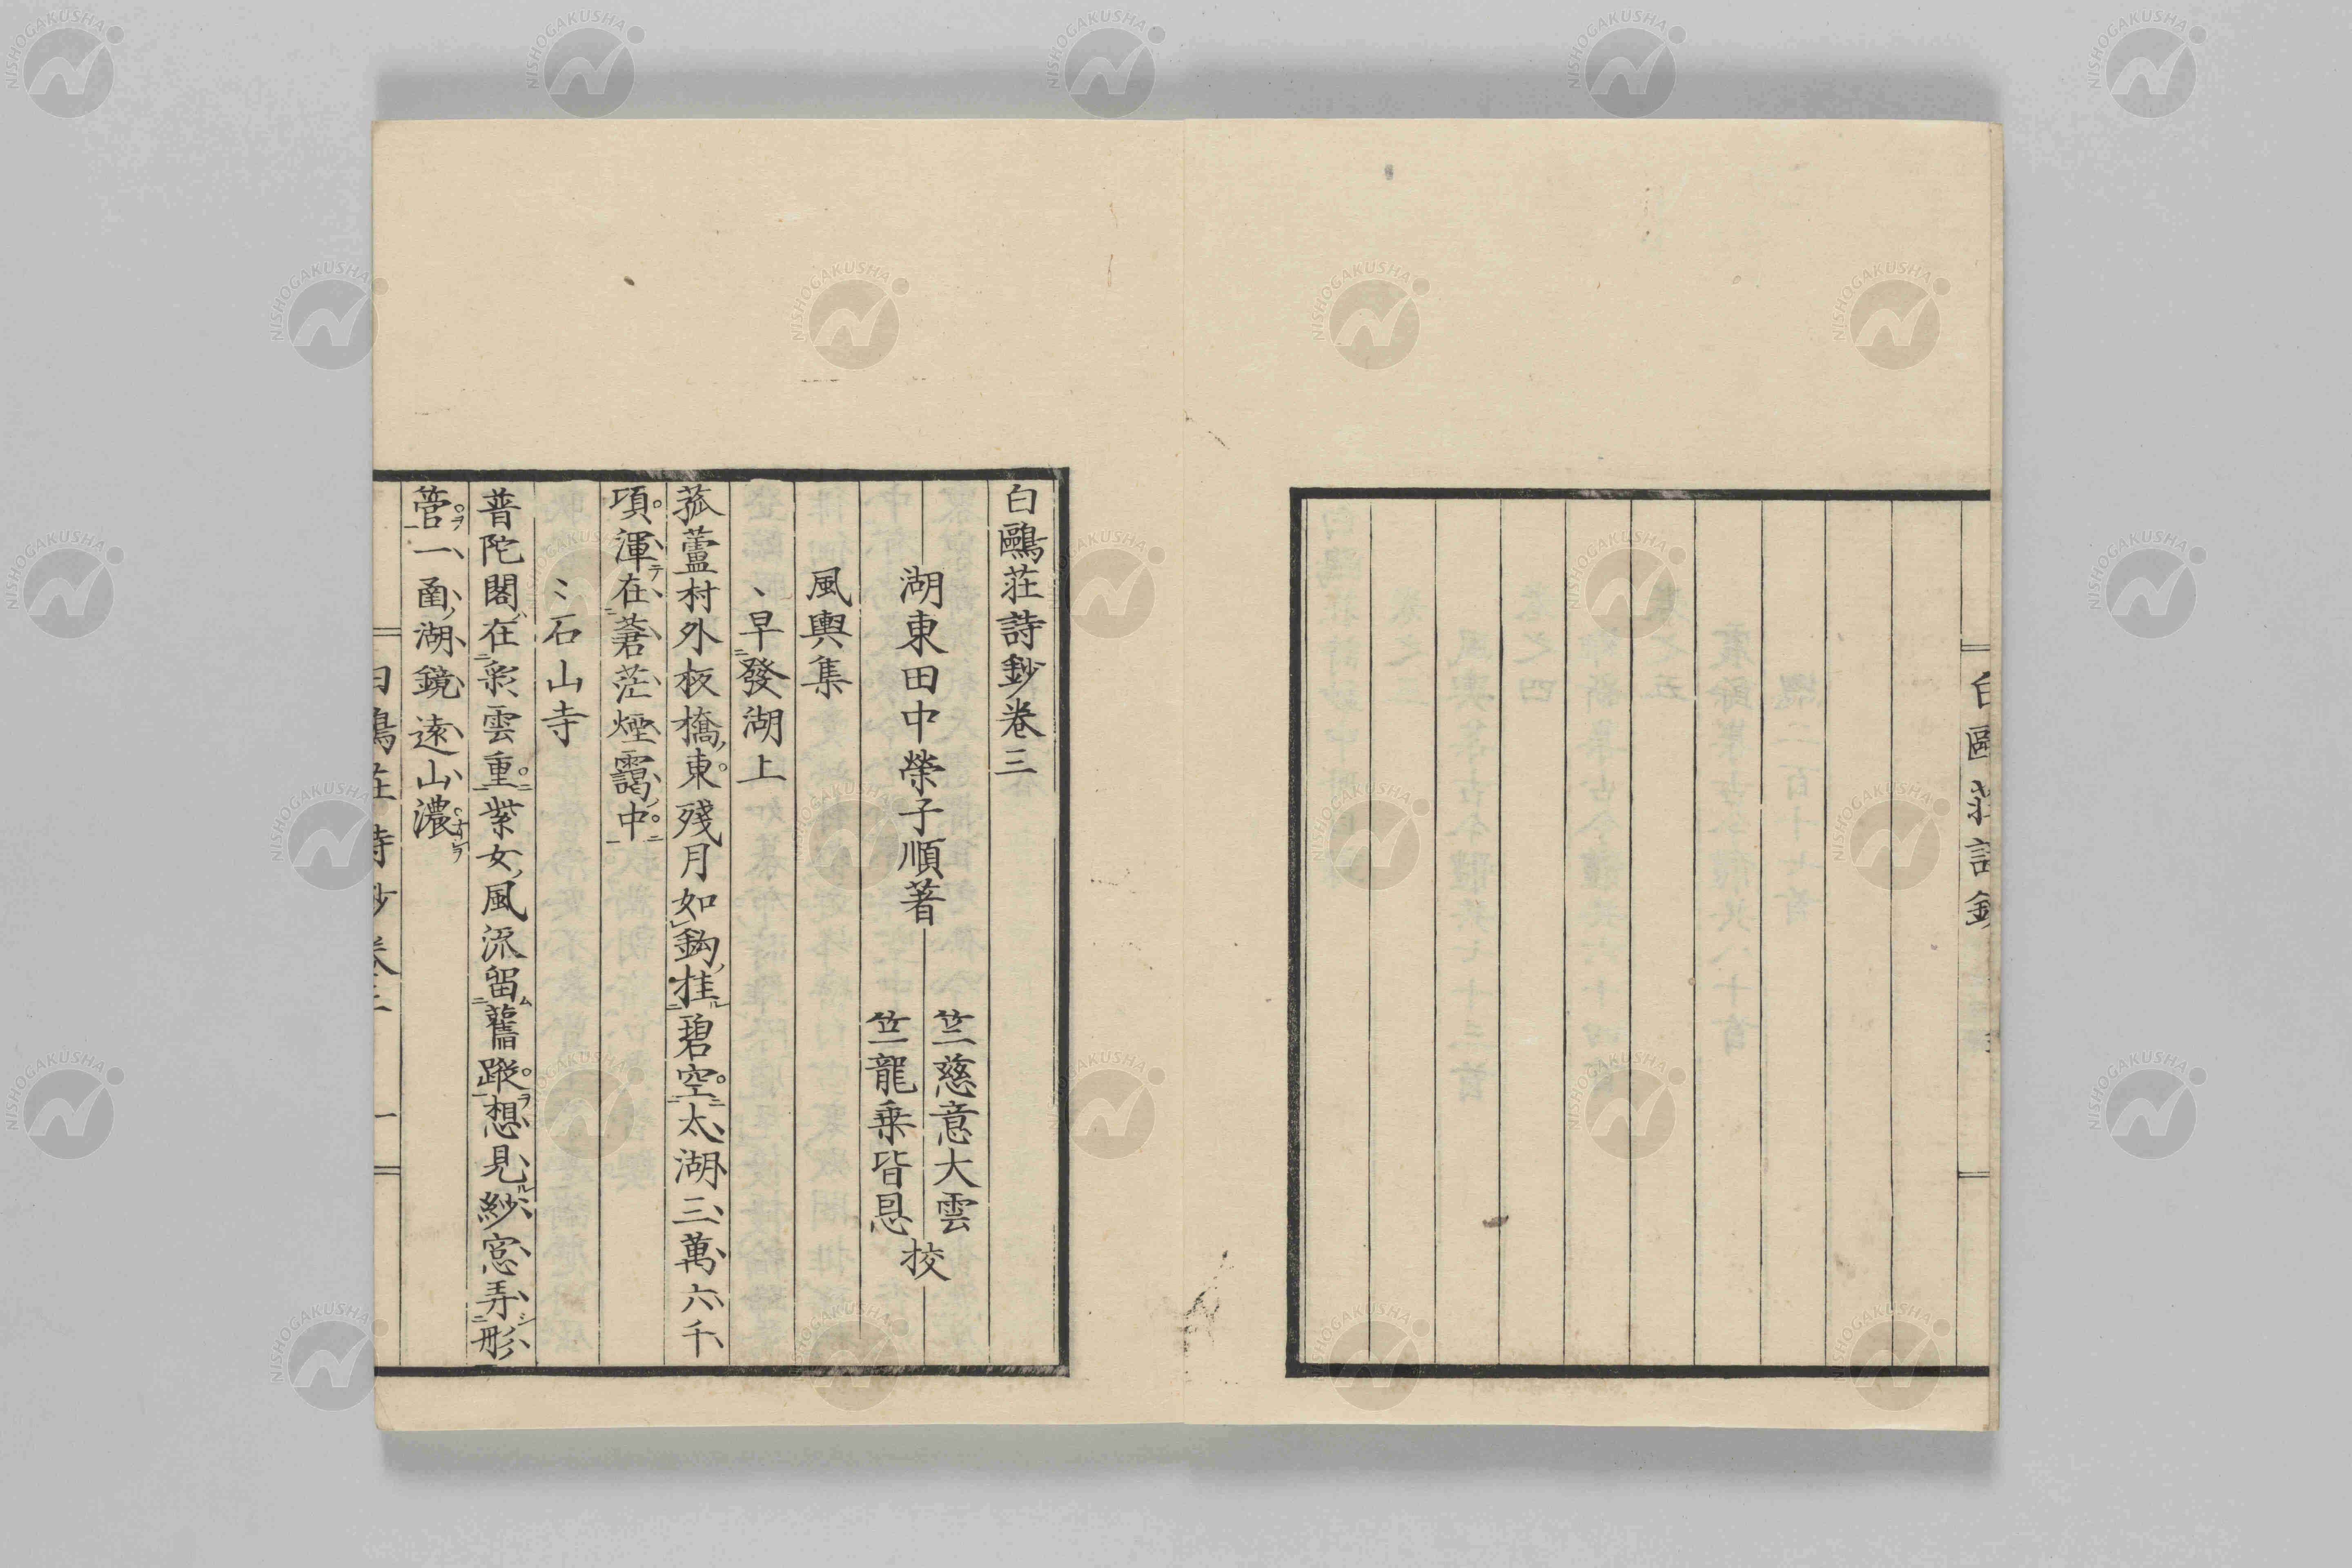 白鷗莊詩鈔
白鷗莊詩鈔卷三
湖東田中榮子順著
竺慈意大雲
竺龍乗皆息
挍
風輿集
早發湖上
菰蘆村外板橋東殘月如鈎挂碧空太湖三萬六千
項渾在蒼茫煙靄中
石山寺
普陀閣在彩雲重紫女風流留舊蹤想見紗窓弄彤
管一函湖鏡遠山濃
白鷗莊詩鈔卷三 一
NISHOGAKUSHA